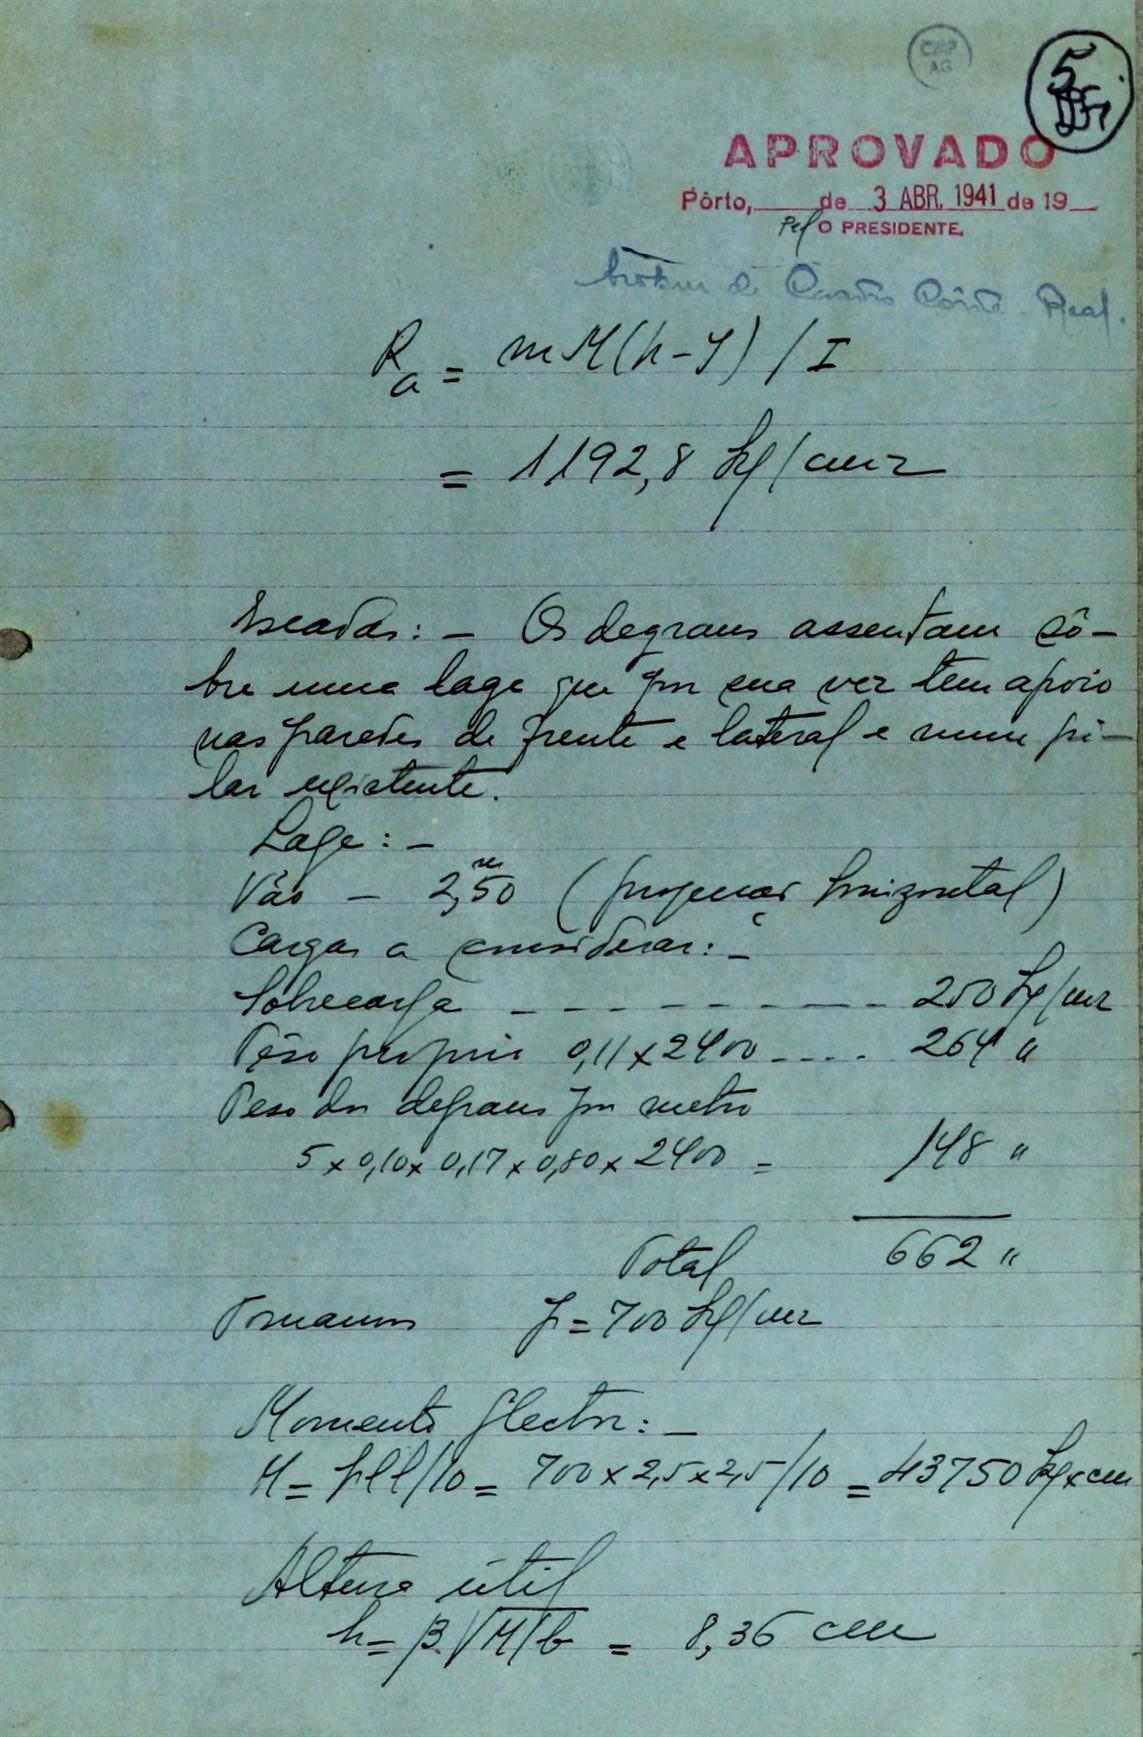 CMP
AG
5
APROVADO
Pôrto, de 3 ABR. 1941 de 19
Pel O PRESIDENTE,
de Castro Côrte Real.
Ra = mM(h-y) / I
= 1192,8 kg/cm2
Escadas: - Os degraus assentam sô-
bre uma lage que por sua vez tem apoio
nas paredes de frente e lateral e num pi-
lar existente.
Lage: -
Vão - 2,50 m (projecção horizontal)
Cargas a considerar: -
Sobrecarga - - - - - - - - 250 kg/m2
Pêso proprio 0,11 x 2400 - - - - 264 "
Peso dos degraus por metro
5 x 0,10 x 0,17 x 0,80 x 2400 = 148 "
Total 662 "
Tomamos p = 700 kg/m2
Momento flector: -
M = pll/10 = 700 x 2,5 x 2,5/10 = 43750 kg x cm
Altura útil
h = β √M/b = 8,36 cm